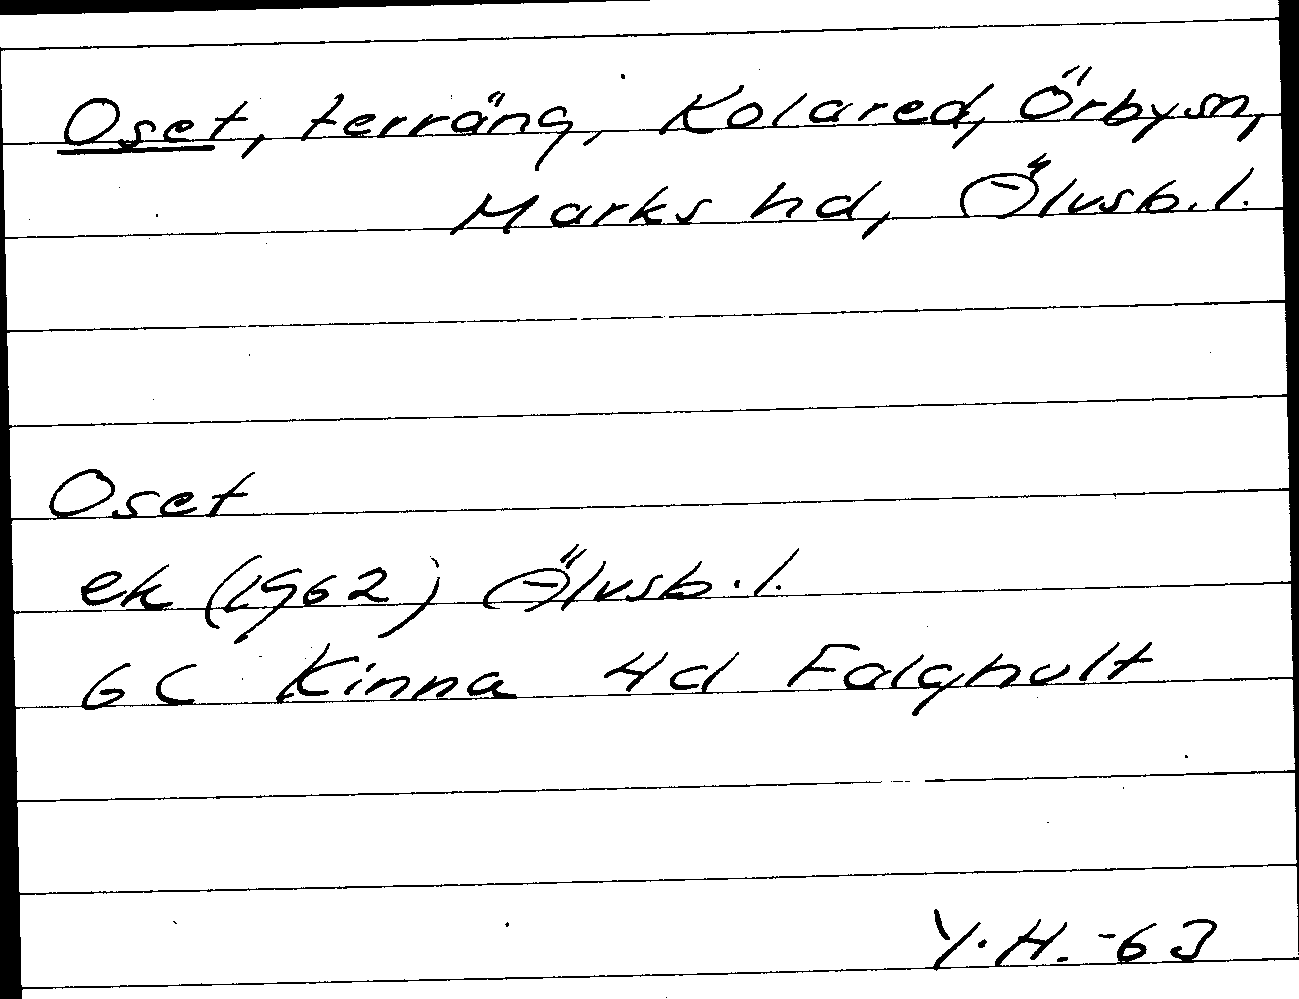 Oset, terräng, Kolared, Örby sn,
Marks hd, Älvsb. l.
Oset
ek (1962) Älvsb. l.
6C Kinna 4d Falghult
Y. H. -63